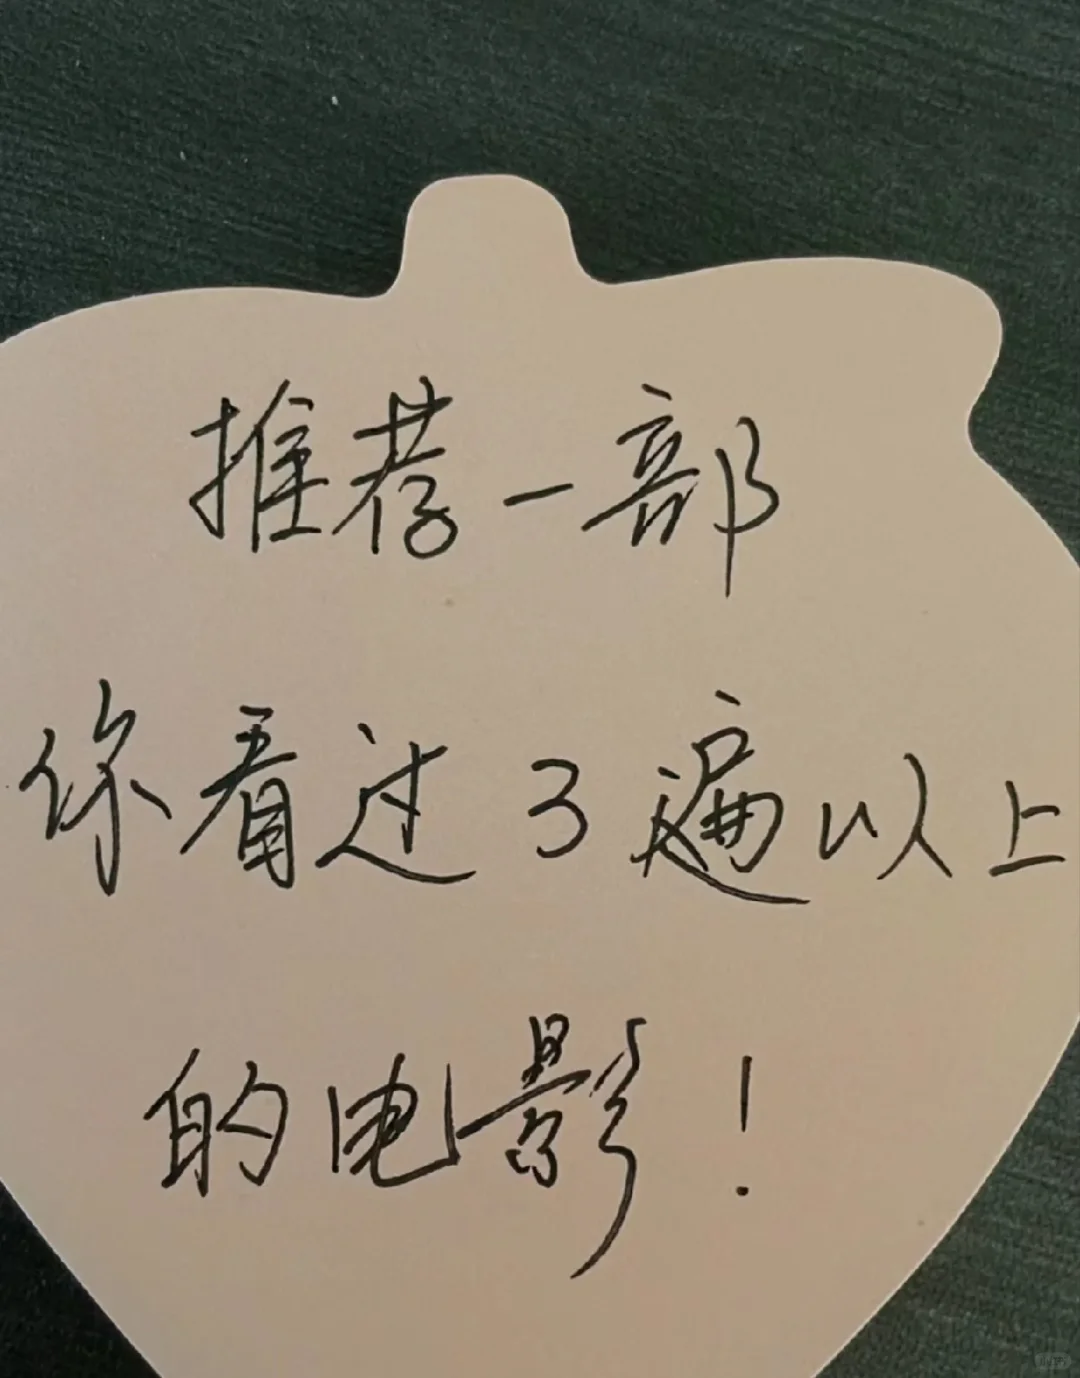 推荐一部
你看过3遍以上
的电影!